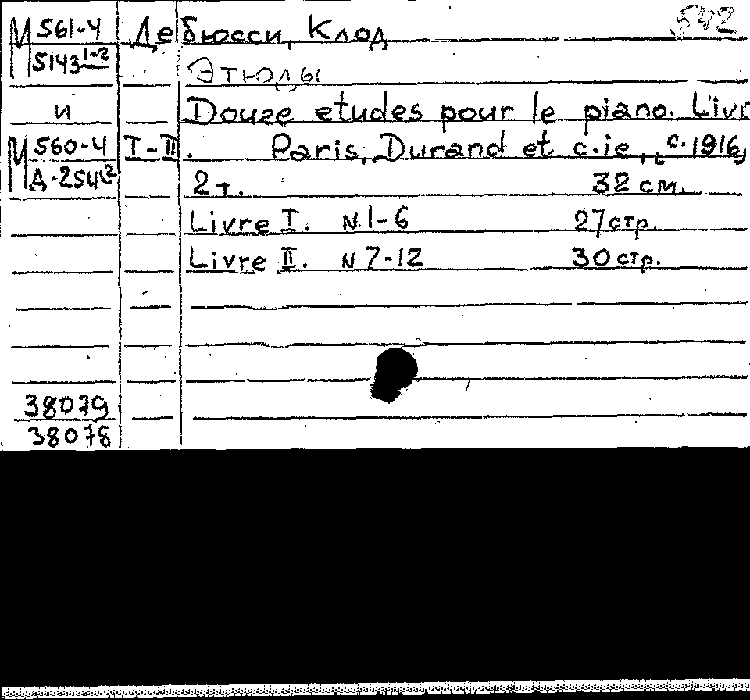 М 561-4 Дебюсси, Клод 542
5143 1-2 Этюды
и Douze etudes pour le piano. Livr
М 560-4 I-II. Paris, Durand et c.ie, "с. 1916,
Д-254 2 т. 32 см.
Livre I. N.1-6 27 стр.
Livre II. N 7-12 30 стр.
38079
38078